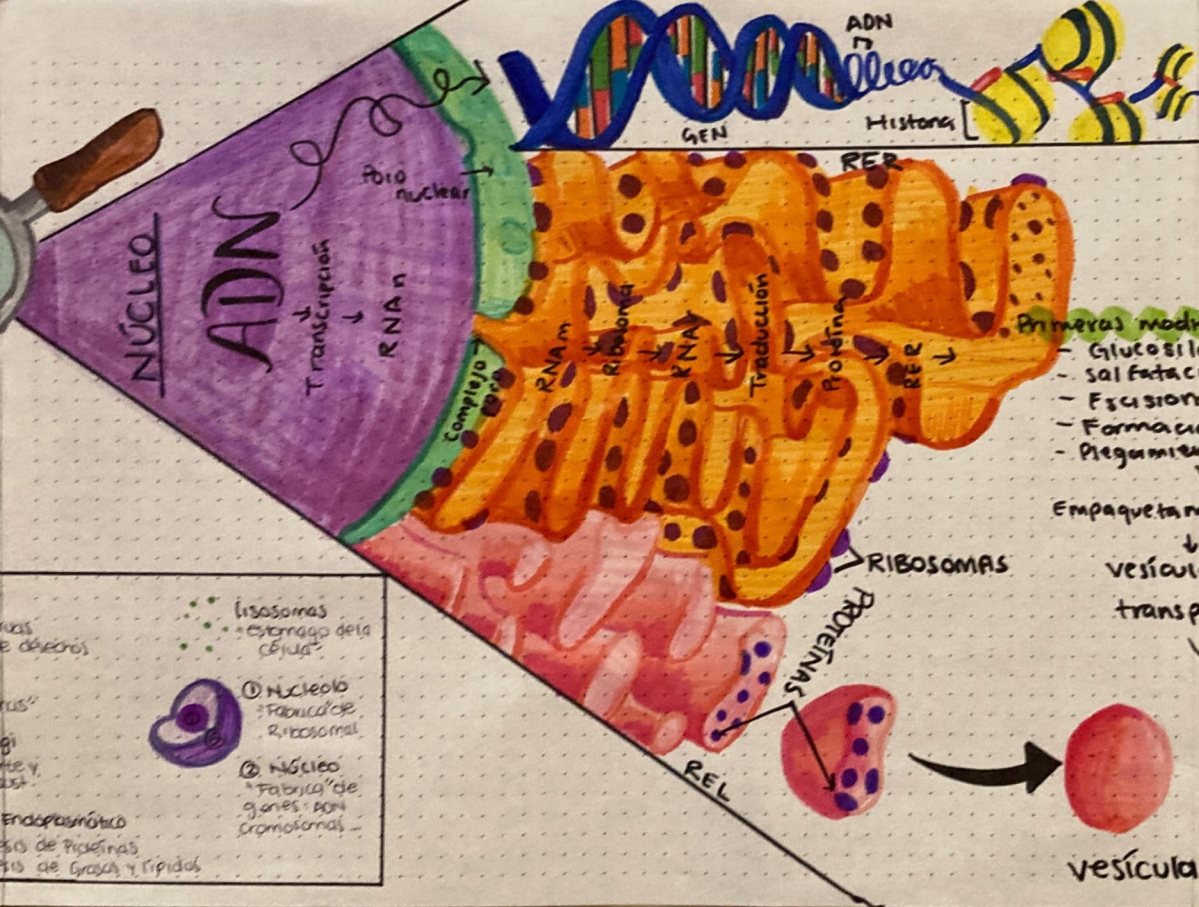 ADN
GEN
Histona
RER
Poro
nuclear
NÚCLEO
ADN
Transcripción
RNAn
Complejo
Poro
RNAm
Ribosoma
RNAr
Traducción
Proteína
RER
Primeras modi
- Glucosil
- Salfatac
- Escision
- Formació
- Plegamie
Empaquetam
vesícul
transp
RIBOSOMAS
PROTEÍNAS
REL
vesícula
lisosomas
"estomago de la
célula"
① Nucleolo
"Fabrica" de
Ribosomal
② Núcleo
"Fabrica" de
genes: ADN
cromosomas
e desechos
gi
rte y
Endoplasmático
esis de Proteínas
esis de Grasas y Lípidos